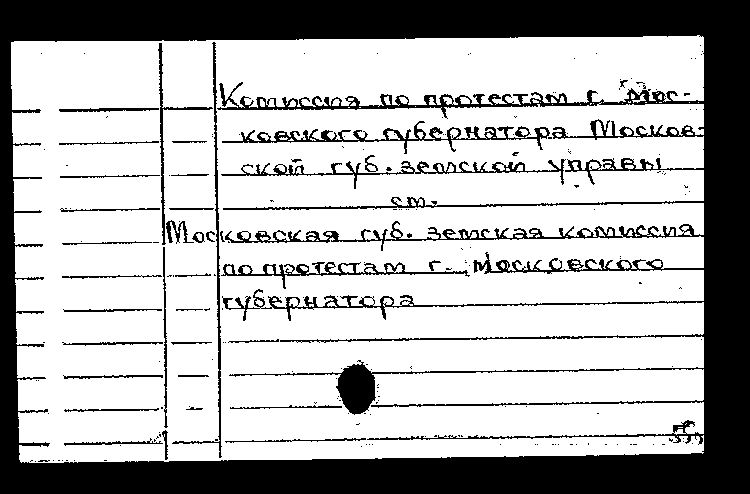 Комиссия по протестам г. Мос-
ковского губернатора Москов-
ской губ. земской управы
см.
Московская губ. земская комиссия
по протестам г. Московского
губернатора